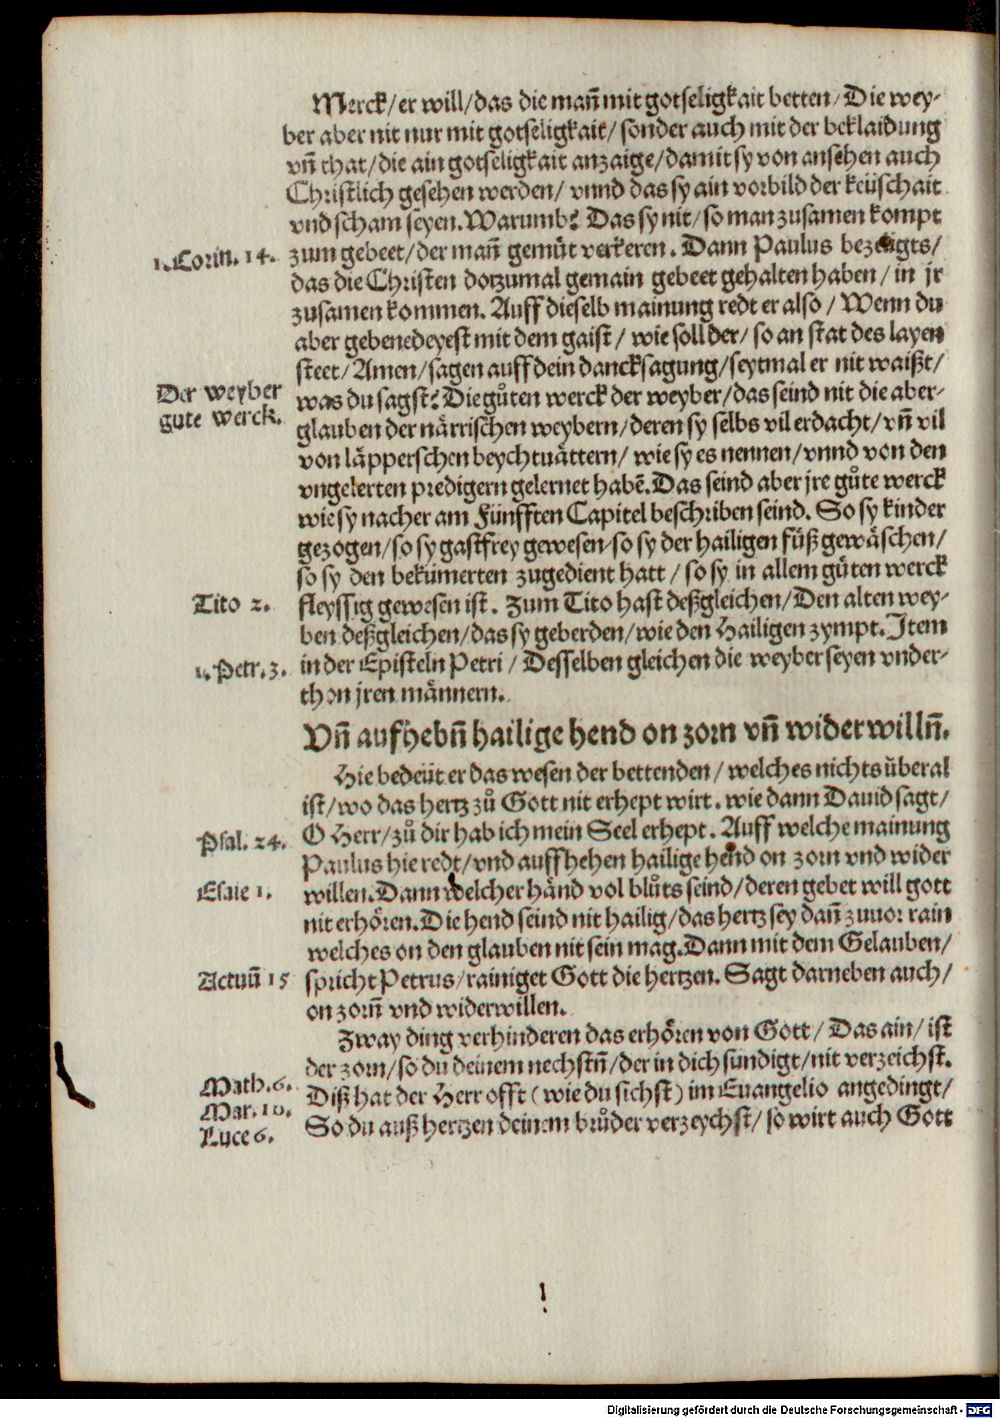 Merck/ er will/ das die mañ mit gotseligkait betten/ Die wey-
ber aber nit nur mit gotseligkait/ sonder auch mit der beklaidung
vñ that/ die ain gotseligkait anzaige/ damit sy von ansehen auch
Christlich gesehen werden/ vnnd das sy ain vorbild der keüschait
vnd scham seyen. Warumb? Das sy nit/ so man zusamen kompt
1. Corin. 14.
zum gebeet/ der mañ gemüt verkeren. Dann Paulus bezeügts/
das die Christen dotzumal gemain gebeet gehalten haben/ in jr
zusamen kommen. Auff dieselb mainung redt er also/ Wenn du
aber gebenedeyest mit dem gaist/ wie soll der/ so an stat des layen
steet/ Amen/ sagen auff dein dancksagung/ seytmal er nit waißt/
Der weyber
gute werck.
was du sagst? Die gůten werck der weyber/ das seind nit die aber-
glauben der närrischen weybern/ deren sy selbs vil erdacht/ vñ vil
von läpperschen beychtuättern/ wie sy es nennen/ vnnd von den
vngelerten predigern gelernet habē. Das seind aber jre gůte werck
wie sy nacher am Fünfften Capitel beschriben seind. So sy kinder
gezogen/ so sy gastfrey gewesen/ so sy der hailigen füß gewäschen/
so sy den bekümerten zugedient hatt/ so sy in allem gůten werck
Tito 2.
fleyssig gewesen ist. Zum Tito hast deßgleichen/ Den alten wey-
ben deßgleichen/ das sy geberden/ wie den Hailigen zympt. Item
1. Petr. 3.
in der Episteln Petri/ Desselben gleichen die weyber seyen vnder-
thon jren männern.
Vñ aufhebñ hailige hend on zorn vñ widerwillñ.
Hie bedeüt er das wesen der bettenden/ welches nichts überal
ist/ wo das hertz zů Gott nit erhept wirt. wie dann Dauid sagt/
Psal. 24.
O Herr/ zů dir hab ich mein Seel erhept. Auff welche mainung
Paulus hie redt/ vnd auffhehen hailige hend on zorn vnd wider
Esaie 1.
willen. Dann welcher händ vol blůts seind/ deren gebet will gott
nit erhören. Die hend seind nit hailig/ das hertz sey dañ zuuor rain
welches on den glauben nit sein mag. Dann mit dem Gelauben/
Actuū 15
spricht Petrus/ rainiget Gott die hertzen. Sagt darneben auch/
on zorñ vnd widerwillen.
Zway ding verhinderen das erhören von Gott/ Das ain/ ist
der zorn/ so du deinem nechstñ/ der in dich sündigt/ nit verzeichst.
Math. 6.
Mar. 10.
Luce 6.
Diß hat der Herr offt (wie du sichst) im Euangelio angedingt/
So du auß hertzen deinem brůder verzeychst/ so wirt auch Gott
Digitalisierung gefördert durch die Deutsche Forschungsgemeinschaft - DFG